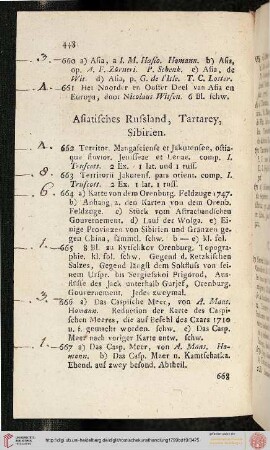 448
3. 660 a) Asia, a I. M. Hasio. Homann. b) Asia,
op. A. F. Zürneri. P. Schenk. c) Asia, de
Wit. d) Asia, p. G. de l'Isle. T. C. Lotter.
A. 661 Het Noorder en Ooster Deel van Asia en
Europa, door Nicolaus Witsen. 6 Bl. schw.
Asiatisches Russland, Tartarey,
Sibirien.
A. 662 Territor. Mangaseiensе et Jakutensee, ostia-
que fluvior. Jeniseae et Lenae. comp. I.
Truscott. 2 Ex. 1 lat. und 1 russ.
8. 663 Territorii Jakutensi. pars orient. comp. I.
Truscott. 2 Ex. 1 lat. 1 russ.
6. 664 a) Karte von dem Orenburg. Feldzuge 1747.
b) Anhang z. den Karten von dem Orenb.
Feldzuge. c) Stück vom Astrachanischen
Gouvernement. d) Lauf der Wolga. e) Ei-
nige Provinzen von Sibirien und Gränzen ge-
gen China, sämmtl. schw. b — e) kl. fol.
1. 665 8 Bl. zu Rytschkov Orenburg. Topogra-
phie. kl. fol. schw. Gegend d. Retzkischen
Salzes, Gegend längst dem Sokfluss von sei-
nem Urspr. bis Sergiefskoi Prigorod, Aus-
fluss des Jack unterhalb Gurjef, Orenburg.
Gouvernement, Jedes zweymal.
3. 666 a) Das Caspische Meer, von A. Maas.
Homann. Reduction der Karte des Caspi-
schen Meeres, die auf Befehl des Czars 1710
u. f. gemacht worden. schw. c) Das Casp.
Meer nach voriger Karte untw. schw.
1. 667 a) Das Casp. Meer, von A. Maas, Ho-
mann. b) Das Casp. Meer u. Kamtschatka.
Ebend. auf zwey besond. Abtheil.
668